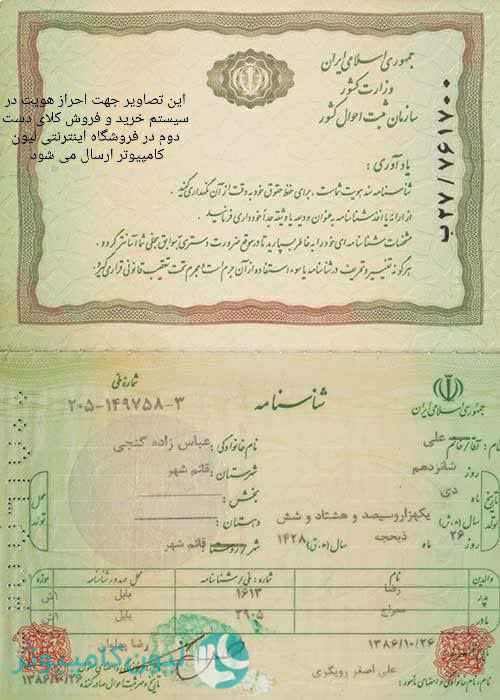 جمهوری اسلامی ایران
وزارت کشور
سازمان ثبت احوال کشور
ب۲۷/۷۶۱۷۰۰
این تصاویر جهت احراز هویت در
سیستم خرید و فروش کالای دست
دوم در فروشگاه اینترنتی لیون
کامپیوتر ارسال می شود
یادآوری:
شناسنامه سند هویت شماست، برای حفظ حقوق خود به دقت از آن نگهداری کنید.
از ارائه یا اخذ شناسنامه به عنوان ودیعه یا وثیقه جداً خودداری فرمائید.
مشخصات شناسنامه ای خود را به خاطر بسپارید تا در موقع ضرورت دسترسی به سوابق سجلی شما آسانتر گردد.
هرگونه تغییر و تحریف در شناسنامه یا سوء استفاده از آن جرم است و مجرم تحت تعقیب قانونی قرار می گیرد.
جمهوری اسلامی ایران
شناسنامه
شماره ملی
۲۰۵-۱۴۹۷۵۸-۳
نام: آقا/خانم علی
نام خانوادگی: عباس زاده گنجی
روز شانزدهم
شهرستان: قائم شهر
ماه دی
بخش:
تاریخ تولد
سال (ه.ش) یکهزاروسیصد و هشتاد و شش
دهستان:
محل تولد
روز ۲۶ ماه ذیحجه سال (ه.ق) ۱۴۲۸
شهر/روستا: قائم شهر
والدین نام شماره: ملی/شناسنامه محل صدور شناسنامه حوزه
پدر رضا ۱۶۱۳ بابل ۱ش
مادر ۲۹۰۵ بابل ۱ش
۱۳۸۶/۱۰/۲۶
علی اصغر رویگری
نام، نام خانوادگی و امضای مامور:
رضا
۱۳۸۶/۱۰/۲۶
لیون کامپیوتر